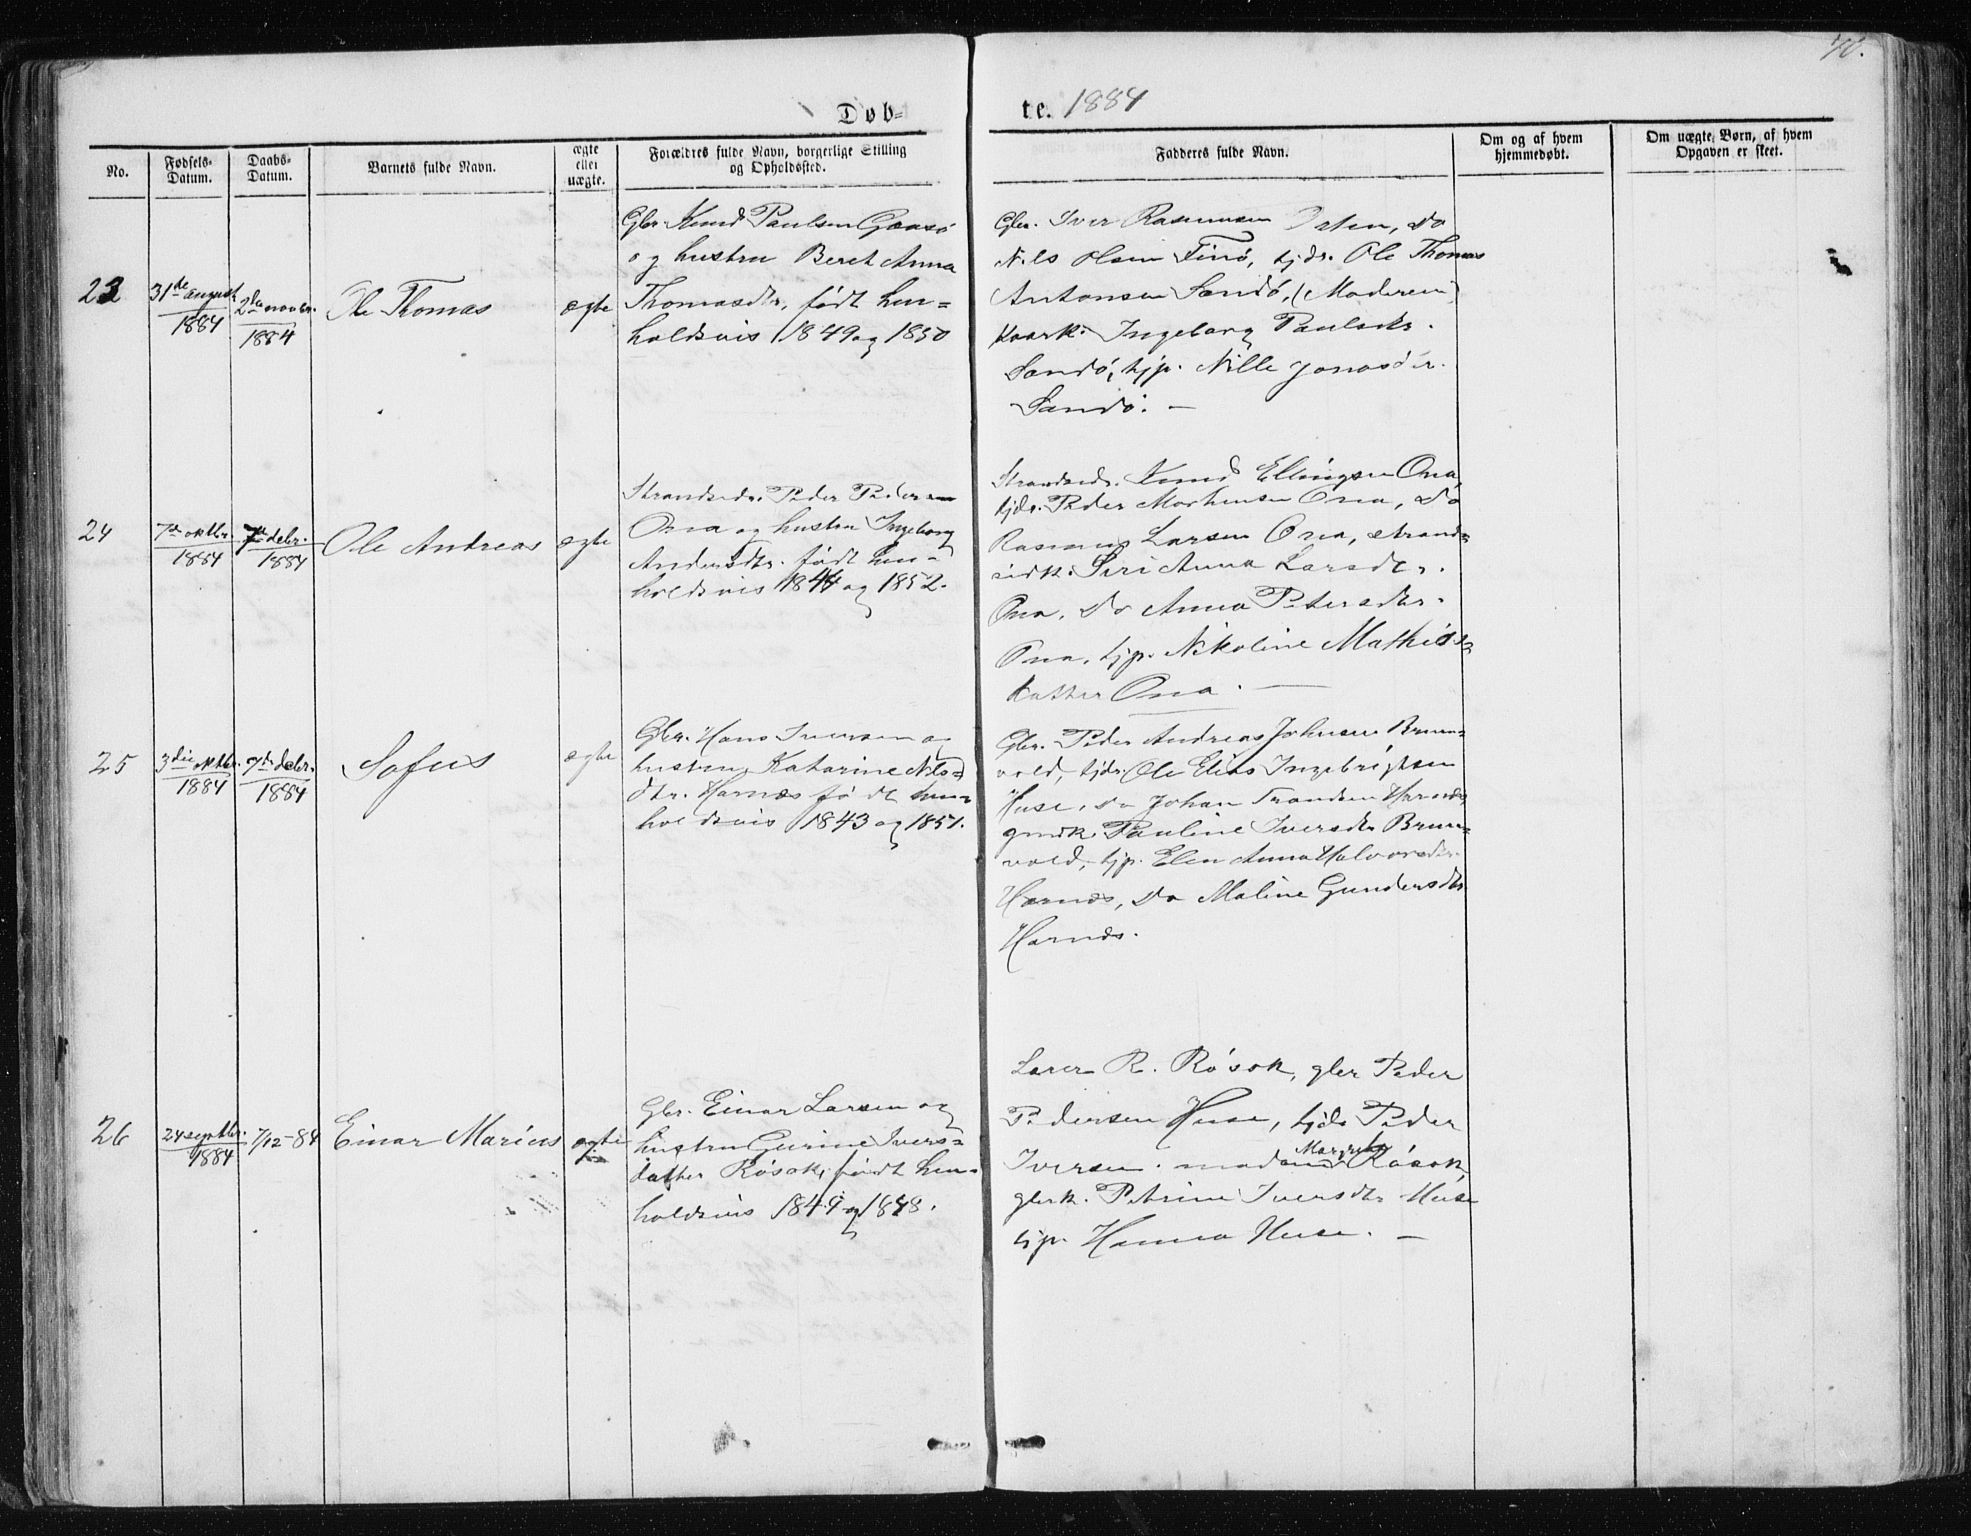 70.
Døb-
te. 1884
No.
Fødsels-
Datum.
Daabs-
Datum.
Barnets fulde Navn.
ægte
eller
uægte.
Forældres fulde Navn, borgerlige Stilling
og Opholdssted.
Fadderes fulde Navn.
Om og af hvem
hjemmedøbt.
Om uægte Børn, af hvem
Opgaven er skeet.
23
31te august
1884
2den novbr.
1884
Ole Thomas
ægte
Gbr. Knud Paulsen Gaasø
og hustru Beret Anna
Thomasdtr. født hen-
holdsvis 1849 og 1850
Gbr. Iver Rasmussen Orten, do
Nils Olsen Finø, tjdr. Ole Thomas
Antonsen Sandø, (Moderen)
Ingeborg Paulsdtr.
Sandø, tjp. Nille Jonasdtr.
Sandø. —
24
7de oktbr.
1884
7de debr.
1884
Ole Andreas
ægte
Strandsidr. Peder Pedersen
Ona og hustru Ingeborg
Andersdtr. født hen-
holdsvis 1844 og 1852.
Strandsidr. Knud Ellingsen Ona,
tjdr. Peder Mortensen Ona, do
Rasmus Larsen Ona, strand-
sidk. Siri Anna Larsdtr.
Ona, do Anna Petersdtr.
Ona, tjp. Nikoline Mathias-
datter Ona. —
25
3die oktbr.
1884
7de debr.
1884
Sofus
ægte
Gbr. Hans Iversen og
hustru Katarine Nils-
dtr. Harnæs født hen-
holdsvis 1843 og 1857.
Gbr. Peder Andreas Johnsen Brun-
vold, tjdr. Ole Elias Ingebrigtsen
Huse, do Johan Trondsen Harnæs,
gmdk. Pauline Iversdtr Brun-
vold, tjp. Elen Anna Halvorsdtr.
Harnæs, do Maline Gundersdtr
Harnæs.
26
24 septbr.
1884
7/12-84
Einar Marius
ægte
Gbr. Einar Larsen og
hustru Gurine Ivers-
datter Røsok, født hen-
holdsvis 1849 og 1848.
Lærer R. Røsok, gbr Peder
Pedersen Huse, tjdr Peder
Iversen. madam Margrete Røsok,
gbrk. Petrine Iversdtr Huse
tjp. Hanna Huse. —